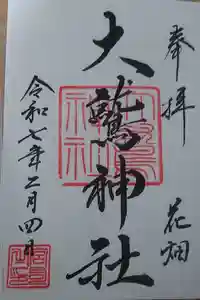 奉拝
花畑
大鷲神社
令和七年二月四日